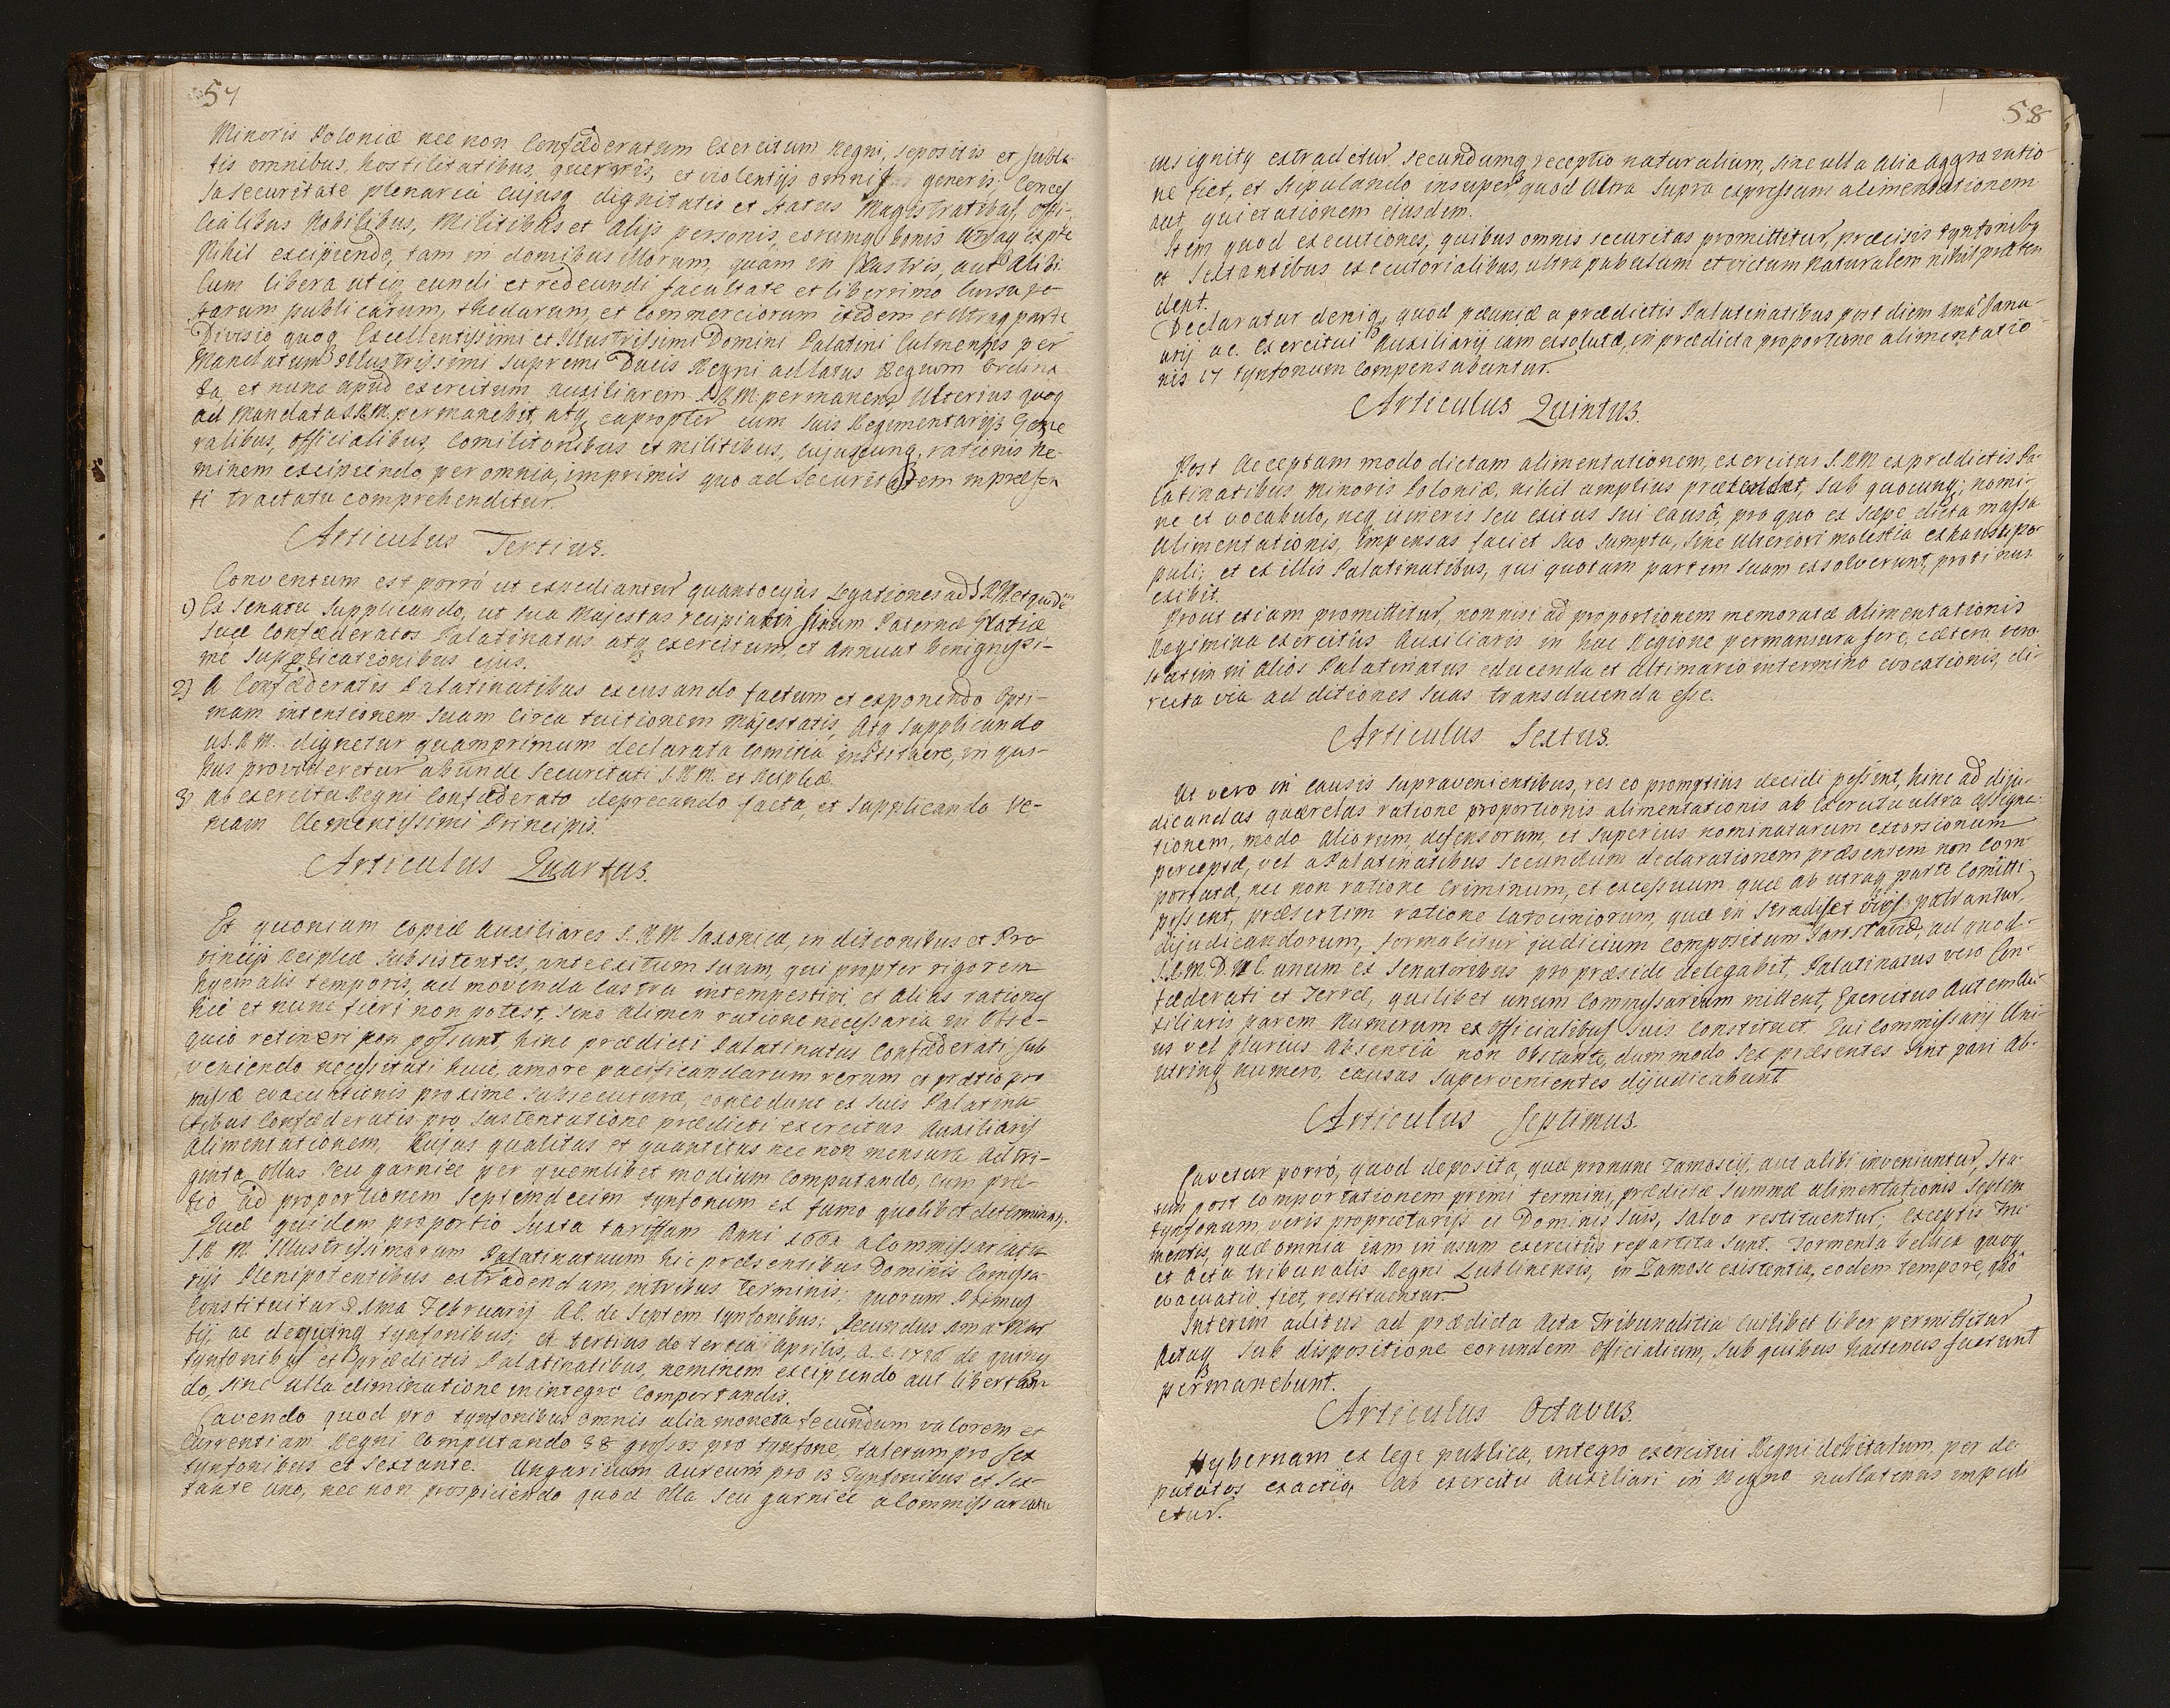 57
Minoris Poloniæ nec non Confæderatum Exercitum Regni, sepositis et subla
tis omnibus, hostilitatibus, querris, et violentijs omnis generis, Conces
sa securitate plenaria cujusq dignitatis et status Magistratibus, Offi-
cialibus Nobilibus, Militibus et Alijs personis, eorumq bonis utraq expte
Nihil excipiendo, tam in domibus illorum, quam in Plaustris, aut Alibi
Cum libera utiq eundi et redeundi facultate et liberrimo Cursu ve-
tarum publicarum, thedarum, et Commerciorum itidem et Utraq parte
Divisio quoq Excellentissimi et Illustrissimi Domini Palatini Culmensis per
Mandatum Illustrissimi supremi Ducis Regni ad latus Regium Ordina
ta, et nunc apud exercitum auxiliarem S.R.M. permanens Ulterius quoq
ad Mandata S.R.M. permanebit, atq eapropter cum suis Regimentarijs Gene
ralibus, Officialibus, Comilitonibus et militibus, cujuscunq, rationis Ne-
minem excipiendo, per omnia, imprimis quo ad Securitatem in præsen
ti tractatu comprehenditur.
Articulus Tertius.
Conventum est porró ut expediantur quantocijus Legationes ad S.R.M et quidē
1) Ex Senatu supplicando, ut sua Majestas recipiat in sinum Paternæ Gratiæ
suæ Confæderatos Palatinatus atq exercitum, et Annuat Benignissi-
me supplicationibus ejus.
2) A Confæderatis Palatinatibus excusando factum et exponendo Opti-
mam intentionem suam Circa tuitionem Majestatis, Atq supplicando
ut S.R.M. dignetur quamprimum declarata Comitia instituere, in qui-
bus provideretur abunde securitati S.R.M. et Reiplcæ.
3) Ab exercitu Regni Confæderato deprecando facta, et supplicando ve-
niam Clementissimi Principis.
Articulus Quartus.
Et quoniam Copiæ Auxiliares S.R.M Saxonicæ, in ditionibus et Pro
vincijs Reiplcæ subsistentes, ante exitum suum, qui propter rigorem
hyemalis temporis, ad movenda Castra intempestivi, et Alias rationes
hic et nunc fieri non potest, sine Alimen ratione necessaria in Obse-
quio retineri non possunt, hinc prædicti Palatinatus Confæderati sub
veniendo necessitati huic, amore pacificandarum rerum et prætio pro
missæ evacuationis proxime subsecuturæ, concedunt ex suis Palatina-
tibus Confæderatis pro sustentatione prædicti exercitus Auxiliaris
Alimentationem, Kujus qualitas et quantitas nec non mensura ad tri-
ginta Ollas seu garniee per quemlibet modium Computando, Cum præ-
tio ad proportionem Septemdecim tynfonum ex fumo quolibet determinat.
Quæ quidem proportio Juxta tariffam Anni 1661 a Commissariatu
S.R M. Illustrissimarum Palatinatuum hic præsentibus Dominis Comissa-
rijs Plenipotentibus extradendam, intribus terminis, quorum Primus
Constituitur D 1ma Februarij A C. de Septem tynfonibus; Secundus 1mā Mar
tij, ac de quinq tynfonibus; et tertius de tertia Aprilis, a. c. 1716 de quinq
tynfonibus et prædictis Palatinatibus, neminem excipiendo aut libertan-
do, sine ulla diminutione in integro Comportandis.
Cavendo quod pro tynfonibus omnis alia moneta secundum valorem et
Currentiam Regni Computando 38 grossos pro tynfone, talerum pro sex
tynfonibus et Sextante. Ungaricum Aureum pro 13 Tynfonibus et Sex-
tante uno, nec non prospiciendo quod Olla seu garniec a Commissariatu
58
insignity extradetur secundumq receptio naturalium, sine ulla Alia Aggravatio
ne fiet, et stipulando insuper quod Ultra supra expressam alimentationem
aut quietationem ejusdem.
Item quod executiones, quibus omnis securitas promittitur, præcisis tynfonibq
et Sextantibus executorialibus, ultra pabulum et victum Naturalem nihil præten
dent.
Declaratur deniq, quod pecuniæ a prædictis Palatinatibus post diem 1mā Janu-
arij ac. Exercitui Auxiliarij iam exsolutæ, in prædicta proportione alimentatio
nis 17 tynfonum Compensabuntur.
Articulus Quintus.
Post Acceptam modo dictam alimentationem, exercitus S.R.M ex prædictis Pa-
latinatibus Minoris Poloniæ, nihil amplius prætendat, sub quocunq; nomi-
ne et vocabulo, neq itineris seu exitus sui Causâ, pro quo ex sæpe dicta massa
Alimentationis, Impensas faciet suo sumptu, sine ulteriori molestia exhausti po-
puli, et ex illis Palatinatibus, qui quotam partem suam exsolverunt, protinus
exibit.
Prout etiam promittitur, nonnisi ad proportionem memoratæ Alimentationis
Regimina exercitûs Auxiliaris in hac Regione permansura fore, cætera vero
statim in Alios Palatinatus educenda et Ultimario intermino evocationis, di-
recta via ad ditiones suas transducenda esse.
Articulus Sextus.
Ut vero in Causis supravenientibus, res eo promptius decidi possent, hinc ad diju-
dicandas quærelas ratione proportionis alimentationis ab Exercitu ultra assigna-
tionem, modo Aliorum, defensorum, et superius nominatarum extorsionum
perceptæ, vel a Palatinatibus secundum declarationem præsentem non Com-
portatæ, nec non ratione Criminum, et excessuum quæ ab utraq parte Comitti
possent, præsertim ratione latrociniorum, quæ in stradis et vijs patrantur,
dijudicandorum, formabitur judicium compositum, ad quod
S.R.M. D.N.C. unum ex Senatoribus pro præside delegabit, Palatinatus vero Con-
fæderati et Terræ, quilibet unum Commissarium mittent, Exercitus Autem Au-
xiliaris parem Numerum ex Officialibus suis Constituet. Qui Commissarij Uni-
us vel plurius Absentiâ non Obstante, dummodo sex præsentes sint pari Ab-
utrinq numero, causas supervenientes dijudicabunt
Articulus Septimus.
Cavetur porró, quod deposita, quæ pronunc Zamoscij, aut alibi inveniuntur, sta-
tim post comportationem primi termini, prædictæ summæ alimentationis septem
tynfonum veris proprietarijs et Dominis suis, salvo restituentur, exceptis Fru-
mentis, quæ omnia iam in usum exercitûs repartita sunt. Tormenta bellica quoq
et Acta tribunalis Regni Lublinensis, in Zamosc existentia, eodem tempore, quô
evacuatio fiet, restituentur.
Interim aditus ad prædicta Acta Tribunalitia cuilibet liber permittitur
Actaq sub dispositione eorundem Officialium, sub quibus hactenus fuerunt
permanebunt.
Articulus Octavus.
Hybernam ex lege publica, integro exercitui Regni debitatum, per de-
putatos exactio, ab exercitu Auxiliari in Regno nullatenus impedi
etur.